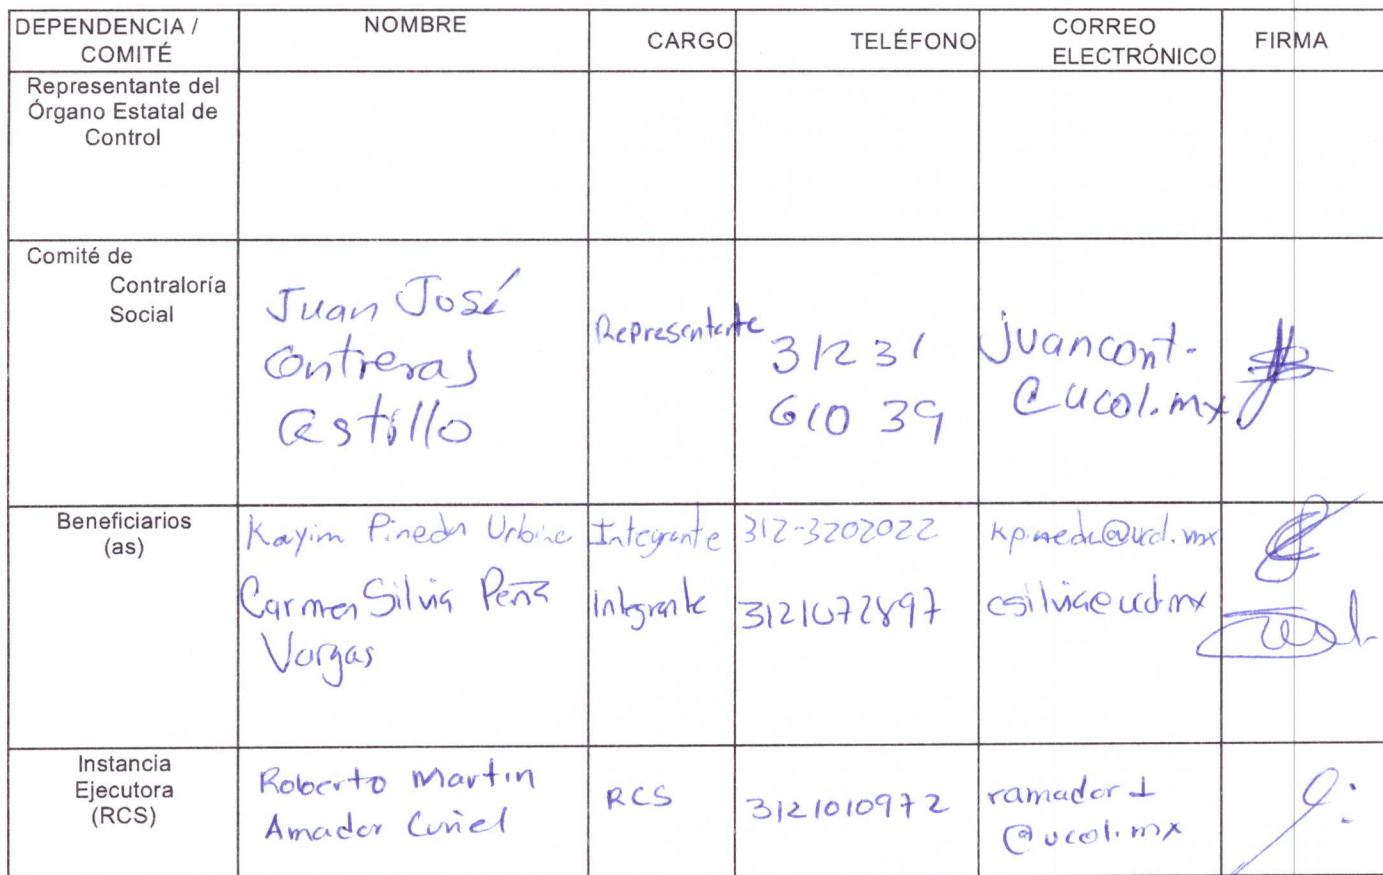 DEPENDENCIA /
COMITÉ
NOMBRE
CARGO
TELÉFONO
CORREO
ELECTRÓNICO
FIRMA
Representante del
Órgano Estatal de
Control
Comité de
Contraloría
Social
Juan José
Contreras
Castillo
Representante
31231
61039
juancont-
@ucol.mx
Beneficiarios
(as)
Kayim Pineda Urbina
Integrante
312-3202022
kpineda@ucol.mx
Carmen Silvia Peña
Vargas
Integrante
3121072897
csilvia@ucol.mx
Instancia
Ejecutora
(RCS)
Roberto Martin
Amador Curiel
RCS
3121010972
ramador1
@ucol.mx